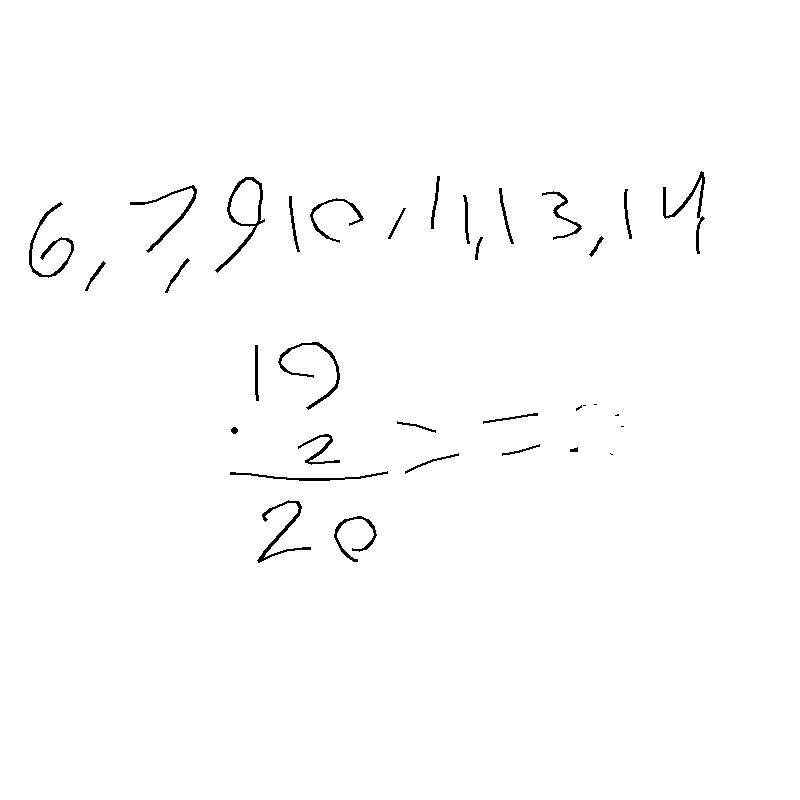 6, 7, 9 10, 11, 13, 14
19
. 2 > =
20